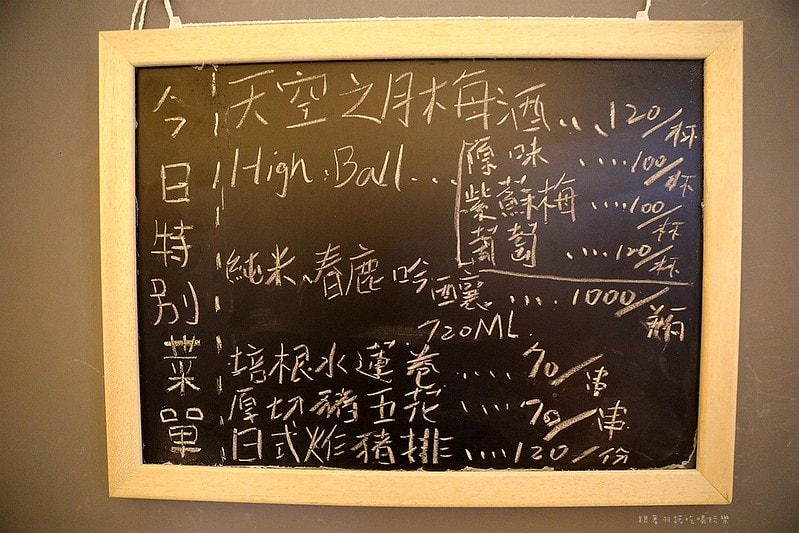 今日特別菜單
天空之月梅酒...120/杯
High Ball...原味....100/杯
紫蘇梅....100/杯
葡萄....120/杯
純米春鹿吟釀....1000/瓶
720ML
培根水蓮卷....70/串
厚切豬五花....70/串
日式炸豬排....120/份